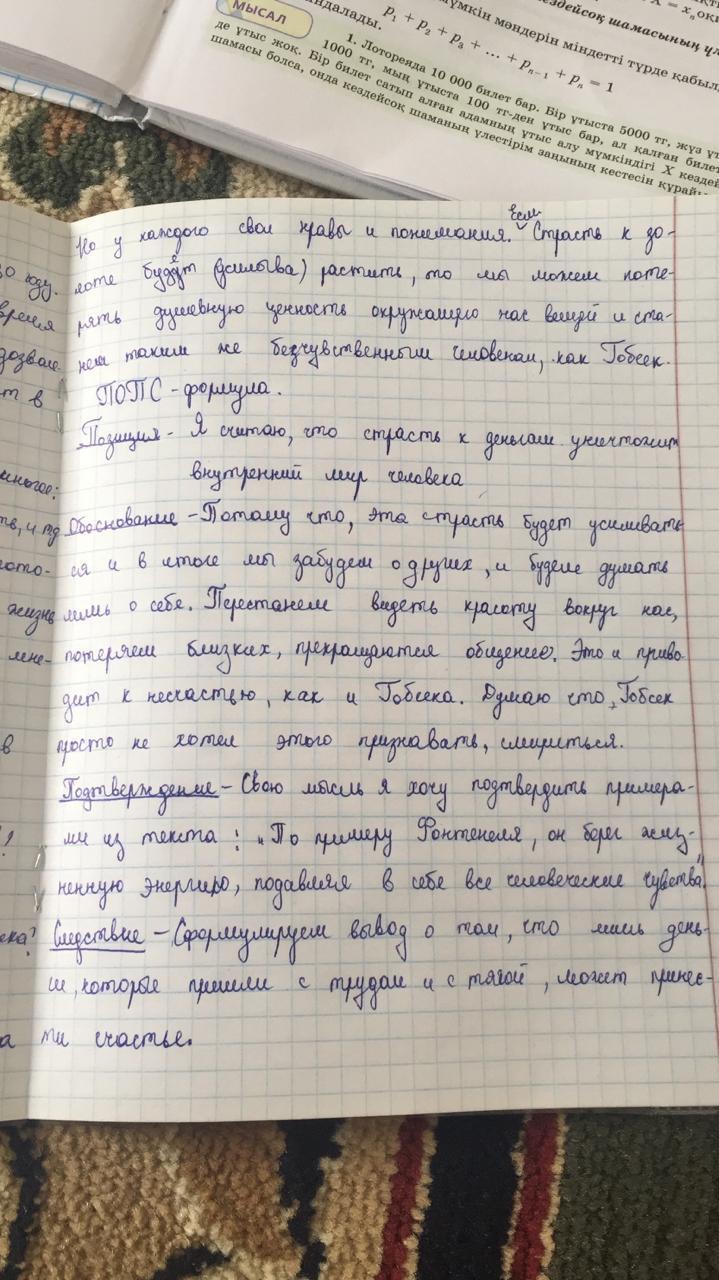 МЫСАЛ
p₁ + p₂ + p₃ + ... + pₙ₋₁ + pₙ = 1
мүмкін мәндерін міндетті түрде қабыл
ндалады.
кездейсоқ шамасының үл
1. Лотореяда 10 000 билет бар. Бір ұтыста 5000 тг, жүз ұт
1000 тг, мың ұтыста 100 тг-ден ұтыс бар, ал қалған билет
де ұтыс жоқ. Бір билет сатып алған адамның ұтыс алу мүмкіндігі X кездей
шамасы болса, онда кездейсоқ шаманың үлестірім заңының кестесін құрай
Но у каждого свои нравы и понимания. Если Страсть к зо-
лоте будет (усилыва) растить, то мы можем поте-
рять душевную ценность окружающего нас вещей и ста-
нем таким же безчувственным человеком, как Гобсек.
ПОПС - формула.
Позиция - Я считаю, что страсть к деньгам уничтожит
внутренний мир человека
Обоснование - Потому что, эта страсть будет усиливать
ся и в итоге мы забудем о других, и будем думать
лишь о себе. Перестанем видеть красоту вокруг нас,
потеряем близких, прекращаются общение. Это и приво
дит к несчастью, как и Гобсека. Думаю что, Гобсек
просто не хотел этого признавать, смириться.
Подтверждение - Свою мысль я хочу подтвердить примера-
ми из текста: "По примеру Фонтенеля, он берег жиз-
ненную энергию, подавляя в себе все человеческие чувства".
Следствие - Сформулируем вывод о том, что лишь день-
ги, которые пришли с трудом и с тягой, может принес-
ти счастье.